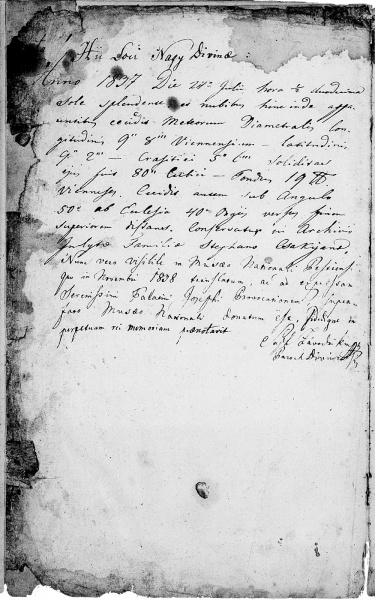 Hic Loci Nagy Divinæ :
Anno 1837 Die 24ª Julii hora ½ duodecima
Sole splendente et nubibus hinc inde appa-
rentibus cecidit Meteorum Diametralis lon-
gitudinis 9" 8''' Viennensium — latitudinis
9" 2''' — Crassitiei 5" soliditas
ejus fuit 80" Cubici — Pondus 19 ℔
Viennenses. Cecidit autem sub Angulo
50° ab Ecclesia 40 Orgÿs versus finem
Superiorem distans. Conservatur in Archivio
Inclytæ Familiæ Stephano Csakÿanæ.
Nunc vero visibile in Musæo Nationali Pestiensi
quo in Novembri 1838 translatum, ac ad expressam
Serenissimi Palatini Josephi Provocationem
Musæo Nationali donatum est, Fidique in
perpetuam rei memoriam prænotavit
Závodnik
Paroch Divinensis